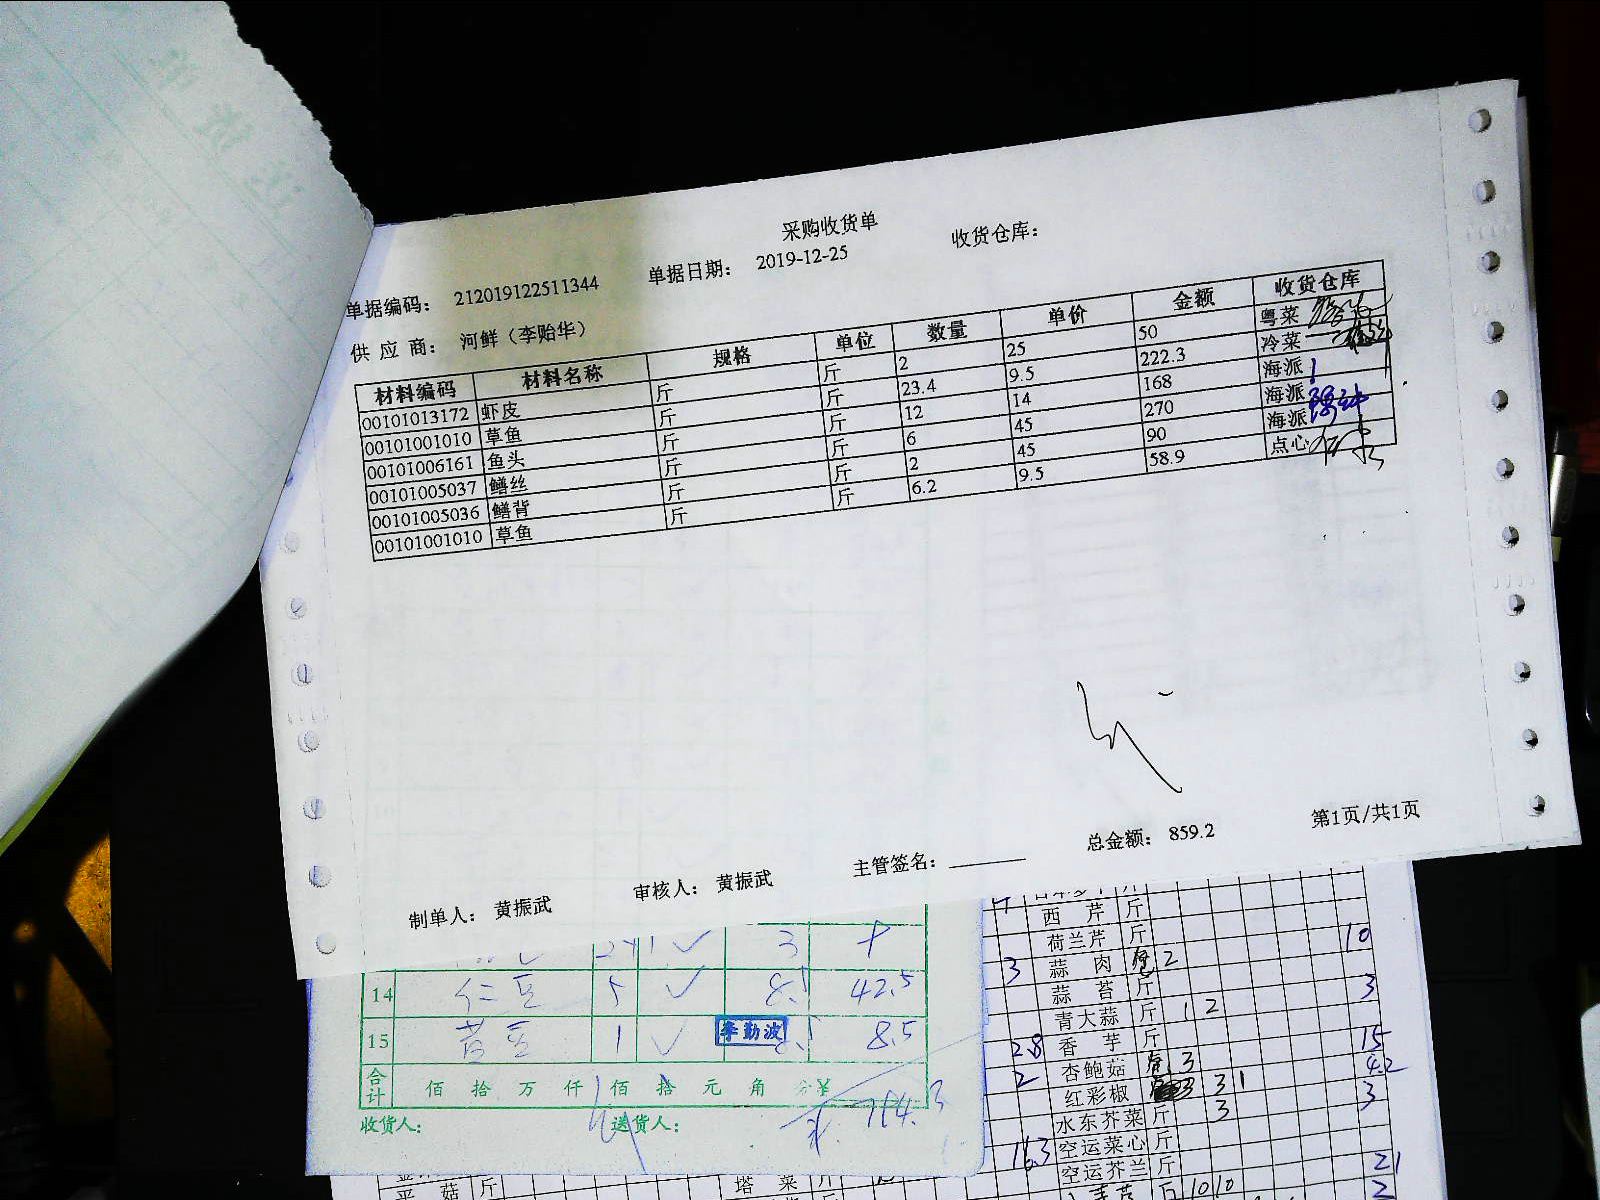 采购收货单
单据编码： 212019122511344 单据日期： 2019-12-25 收货仓库：
供 应 商： 河鲜（李贻华）
材料编码 材料名称 规格 单位 数量 单价 金额 收货仓库
00101013172 虾皮 斤 斤 2 25 50 粤菜
00101001010 草鱼 斤 斤 23.4 9.5 222.3 冷菜
00101006161 鱼头 斤 斤 12 14 168 海派
00101005037 鳝丝 斤 斤 6 45 270 海派
00101005036 鳝背 斤 斤 2 45 90 海派
00101001010 草鱼 斤 斤 6.2 9.5 58.9 点心
制单人： 黄振武 审核人： 黄振武 主管签名： 总金额： 859.2 第1页/共1页
3
14 仁豆 5 8.5 42.5
15 1 李勤波 8.5
合计 佰 拾 万 仟 佰 拾 元 角 分￥
收货人： 送货人：
西 芹 斤
荷兰芹 斤 10
3 蒜 肉 2
蒜 苔 斤 3
青大蒜 斤 1 2
2.8 香 芋 斤 15
2 杏鲍菇 3 4.2
红彩椒 3 1 3
水东芥菜 斤 3
16.3 空运菜心 斤
空运芥兰 斤 21
平 菇 斤 塔 菜 斤
斤 10 10 2